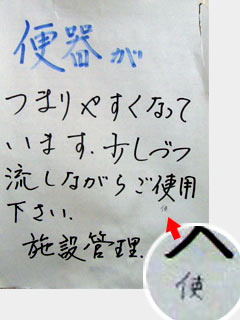 便器が
つまりやすくなって
います.少しづつ
流しながらご使用
下さい.
使
施設管理.
使